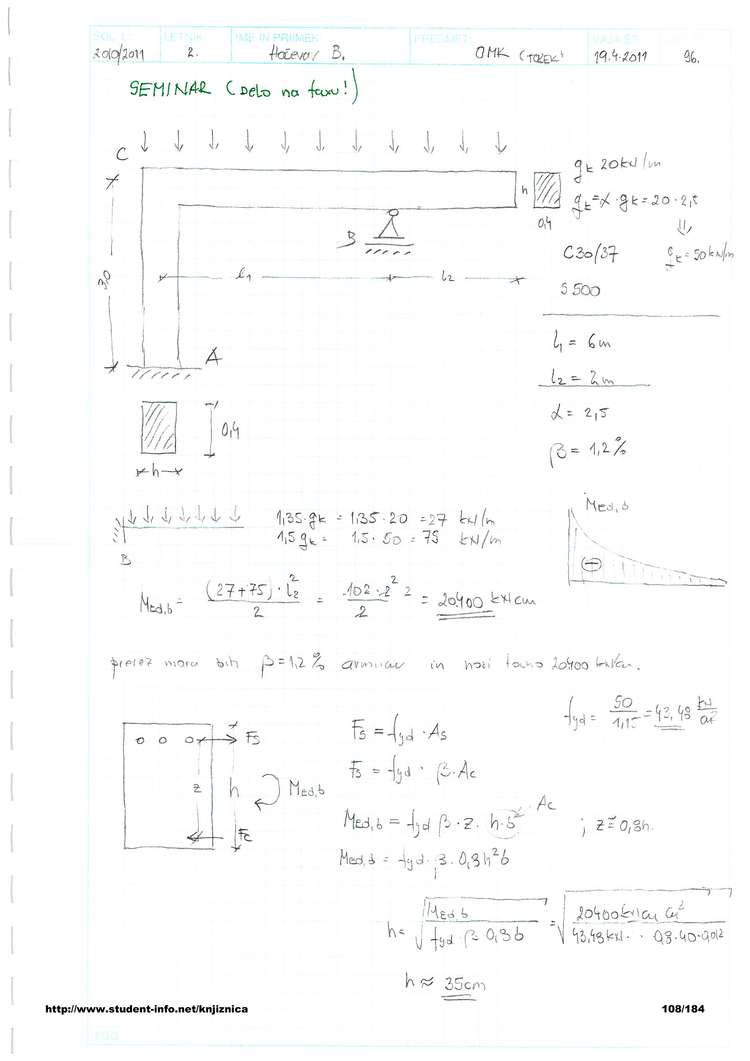 ŠOL. L.: LETNIK IME IN PRIIMEK PREDMET
2010/2011 2. Hočevar B. OMK (TOREK) 19.4.2011 96.
SEMINAR (Delo na faxu!)
C
h
0,4
gk 20 kN/m
qk = α · gk = 20 · 2,5
⇓
qk = 50 kN/m
C30/37
S500
B
3,0
l1 l2
A
l1 = 6m
l2 = 2m
α = 2,5
β = 1,2%
0,4
h
B
1,35·gk = 1,35·20 = 27 kN/m
1,5 qk = 1,5 · 50 = 75 kN/m
MEd,b
+
MEd,b = (27+75) · l2² / 2 = 102 · 2² / 2 = 20400 kNcm
prerez mora biti β = 1,2% armiran in nosi točno 20400 kNcm.
fyd = 50 / 1,15 = 43,48 kN/cm²
Fs
z h MEd,b
Fc
Fs = fyd · As
Fs = fyd · β · Ac
MEd,b = fyd β · z · h·b Ac ; z ≅ 0,8h.
MEd,b = fyd · β · 0,8h²b
h = √ MEd,b / fyd β 0,8b = √ 20400 kNcm cm² / 43,48 kN · 0,8·40·0,012
h ≈ 35cm
http://www.student-info.net/knjiznica 108/184